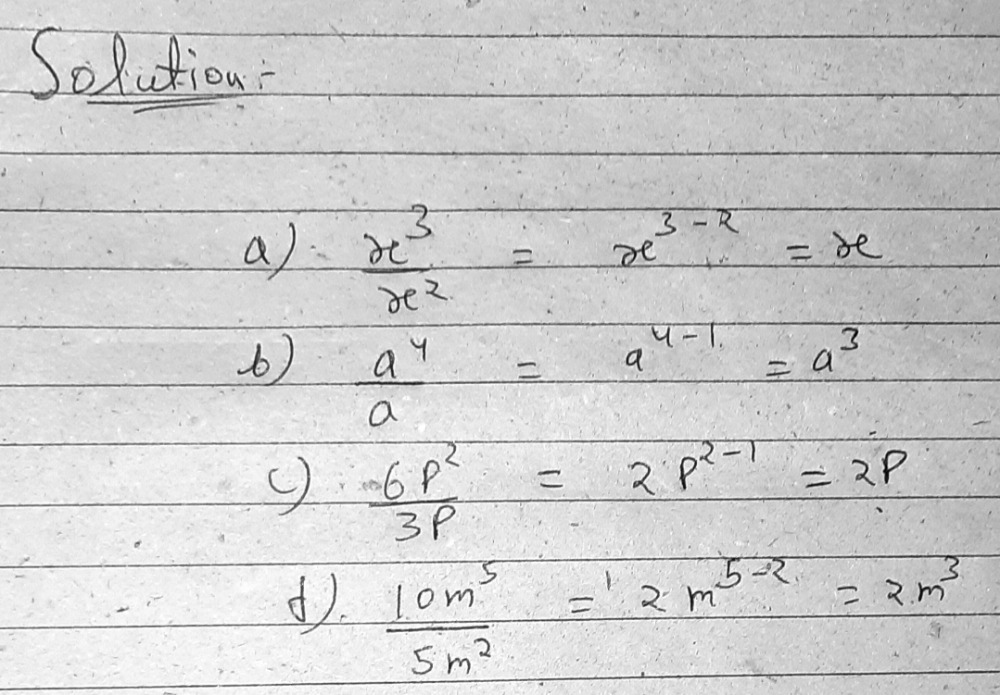 Solution:-
a) x³/x² = x³⁻² = x
b) a⁴/a = a⁴⁻¹ = a³
c) 6P²/3P = 2P²⁻¹ = 2P
d) 10m⁵/5m² = 2m⁵⁻² = 2m³